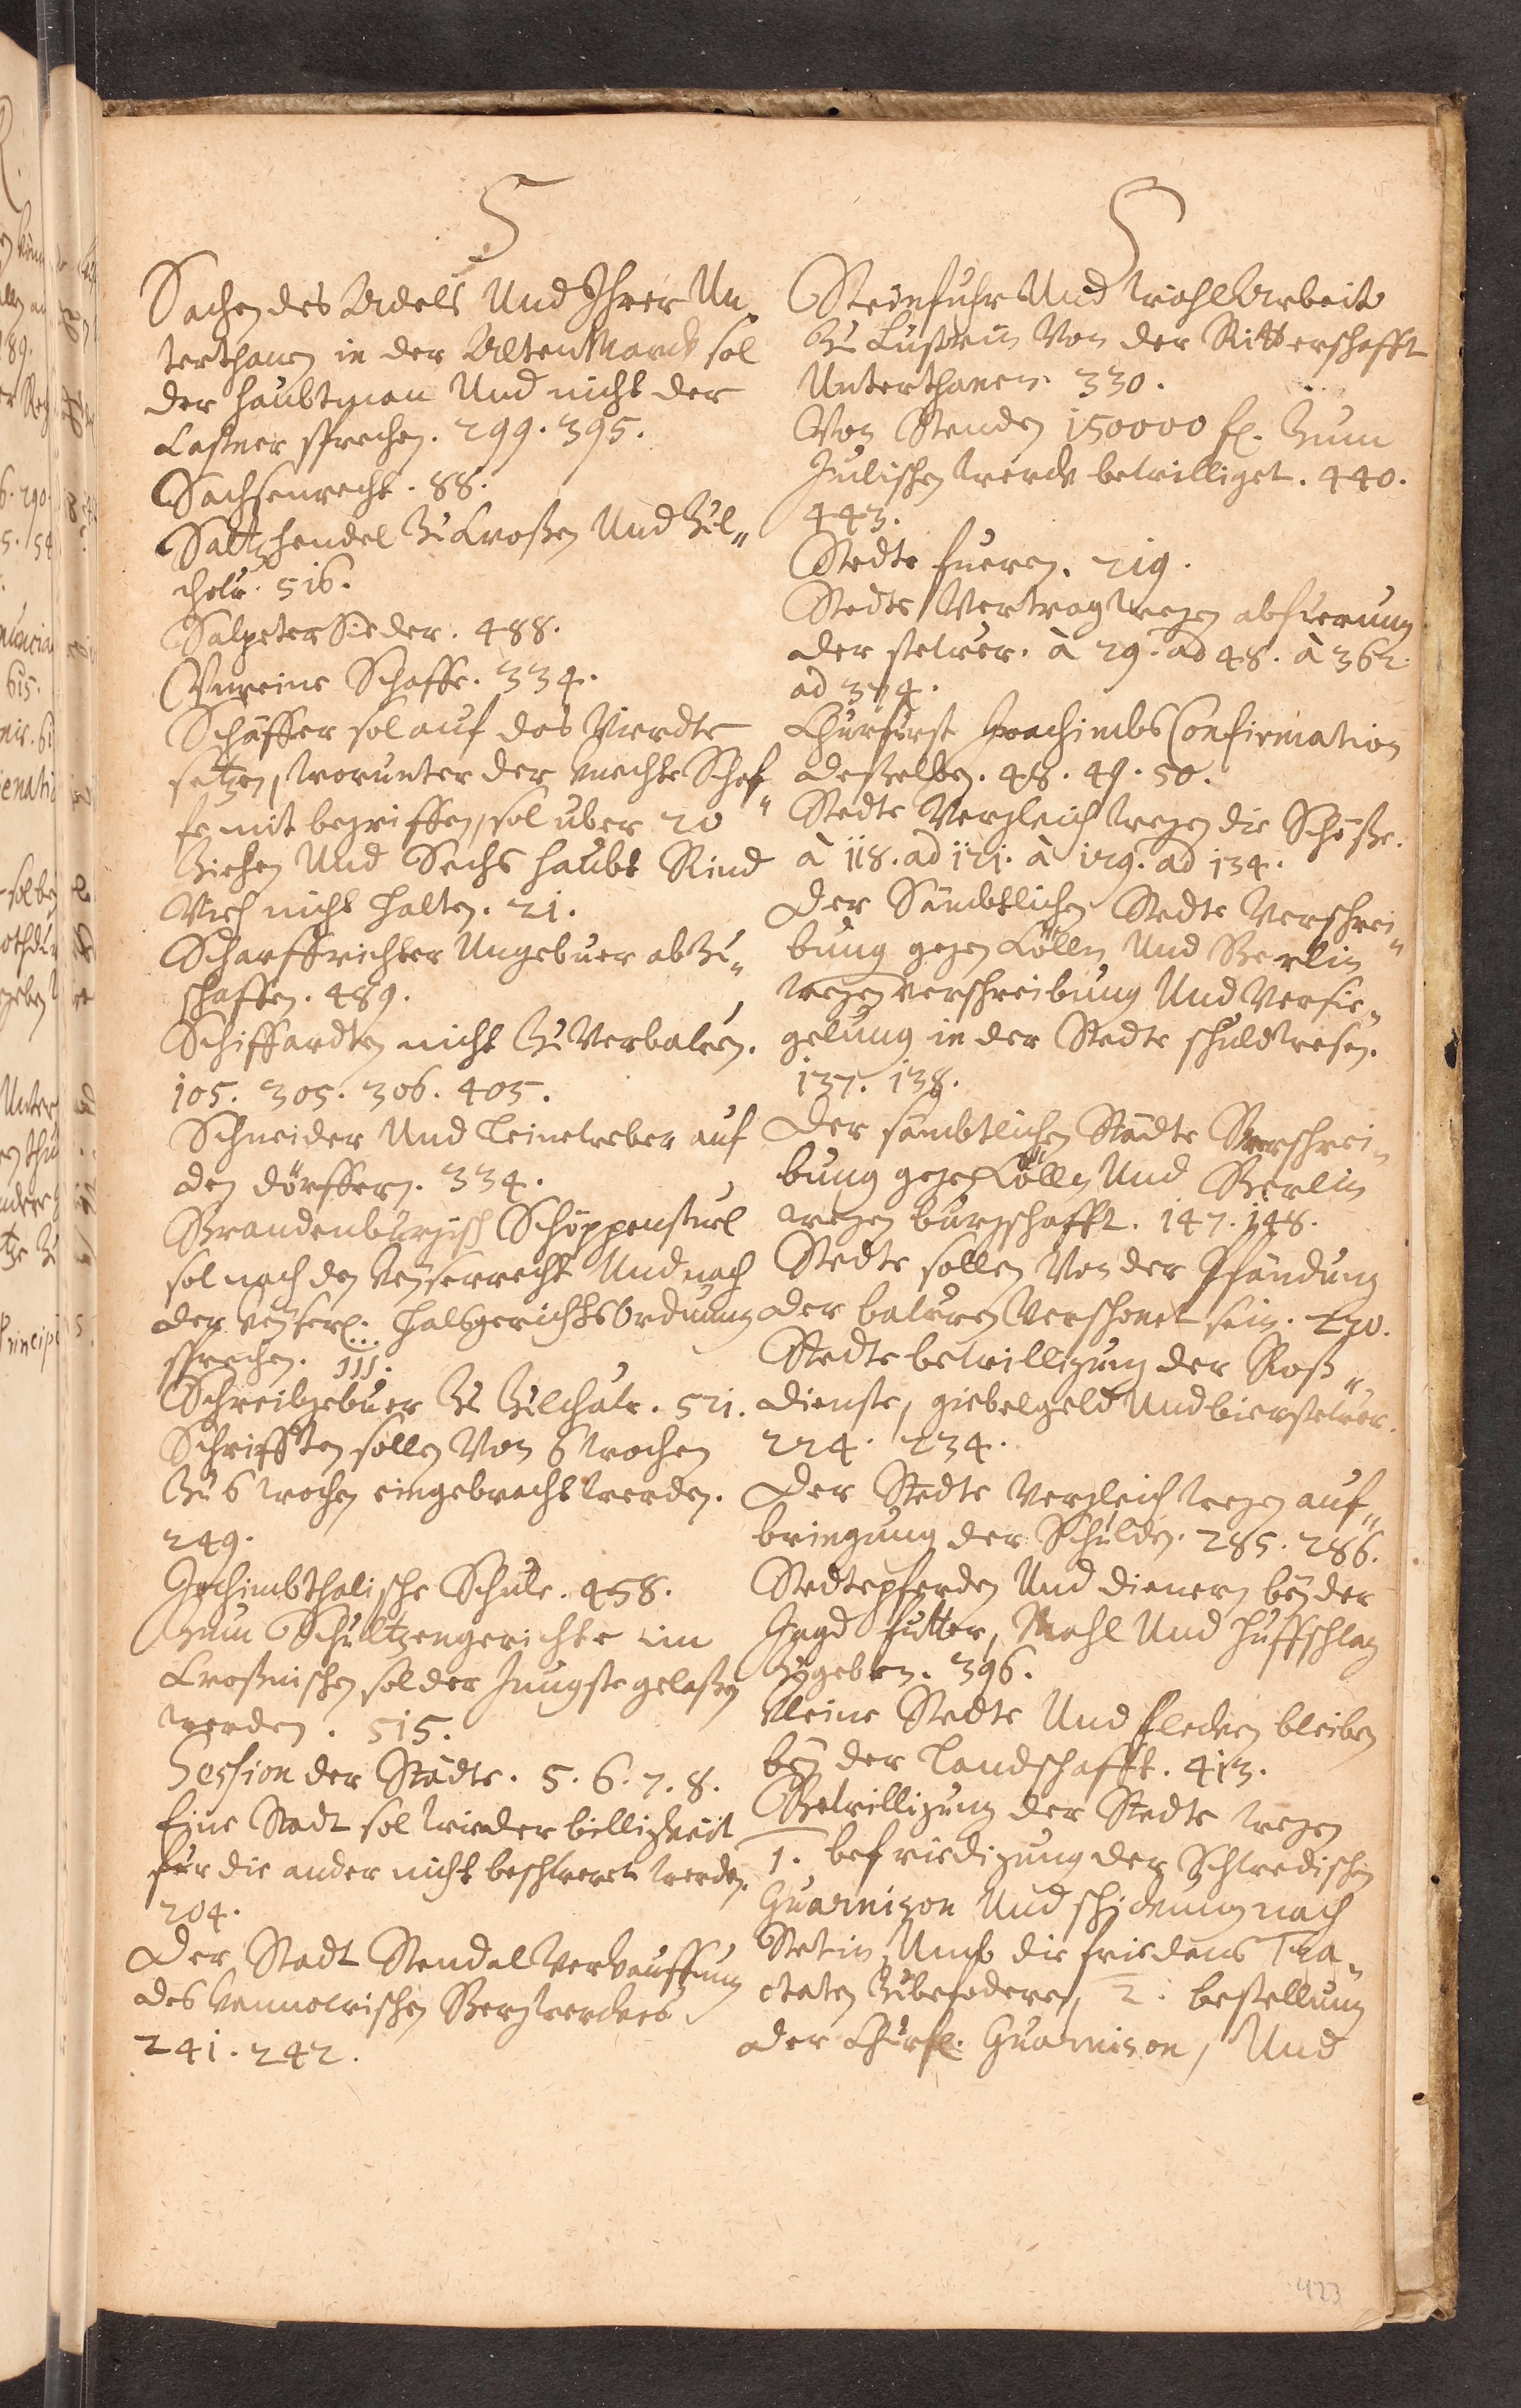 S
Sachen des Adels Und Ihrer Un„
terthanen in der AltenMarck sol
der Haubtman Und nicht der
Castner sprechen. 299. 395.
Sachsenrecht. 88.
Saltzhendel Zu Croßen Und Zül„
chow. 516.
SalpeterSieder. 488.
Unreine Schaffe. 334.
Schäffer sol auf das Vierdte
setzen, worunter der knechte Schaf„
fe mit begriffen, sol uber 20
Ziehen Und Sechs haubt Rind
Vieh nicht halten. 21.
Scharffrichter Ungebuer abZu„
schaffen. 489.
Schiffardten nicht Zu Verbauen.
105. 305. 306. 405.
Schneider Und Leineweber auf
den dörffern. 334.
Brandenburgisch Schöppenstuel
sol nach den Keyserrecht Und nach
der Keyserl. HalsgerichtsOrdnung
sprechen. 111.
Schreibgebuer Zu Zulchow. 521.
Schrifften sollen Von 6 wochen
Zu 6 wochen eingebracht werden.
249.
Jochimbthalische Schule. 458.
Zum Schultzengerichte im
Croßnischen sol der Jungste gelaßen
werden. 515.
Session der Städte. 5. 6. 7. 8.
Eine Stadt sol wieder billigkeit
für die ander nicht beschwert werden.
204.
Der Stadt Stendal Verkauffung
des Bergwerckes
241. 242.
S
Steinfuhr Und WahlArbeit
Zu Custrin Von der Ritterschafft
Unterthanen. 330.
Von Stenden 150000 fl. Zum
Julischen werck bewilliget. 440.
443.
Stedte fueren. 219.
Stedte Vertrag wegen abfuerung
der stewer. à 29. ad 48. à 362.
ad 374.
Churfürst Joachimbs Confirmation
deßelben. 48. 49. 50.
Stedte Vergleich wegen die Schöße.
à 118. ad 121. à 129. ad 134.
Der Sämbtlichen Stedte Verschrei„
bung gegen Cölln Und Berlin
wegen verschreibung Und Versie„
gelung in der Stedte schuldwesen.
137. 138.
Der sämbtlichen Städte Verschrei„
bung gegen Cölln Und Berlin
wegen burgschafft. 147. 148.
Stedte sollen Von der Pfändung
der bauren Verschonet sein. 220.
Stedte bewilligung der Roß„
dienste, giebelgeld Und bierstewer.
224. 234.
Der Stedte Vergleich wegen auf„
bringung der Schulden. 285. 286.
Stedtepferden Und dienern bey der
Jagd futter, Mahl Und Huffschlag
Zugeben. 396.
Kleine Stedte Und flecken bleiben
bey der Landschafft. 413.
Bewilligung der Stedte wegen
1. befriedigung der Schwedischen
Guarnison Und schickung nach
Stetin, Umb die friedens Tra„
ctaten Zubefodern, 2. bestellung
der Churfl. Guarnison, Und
423